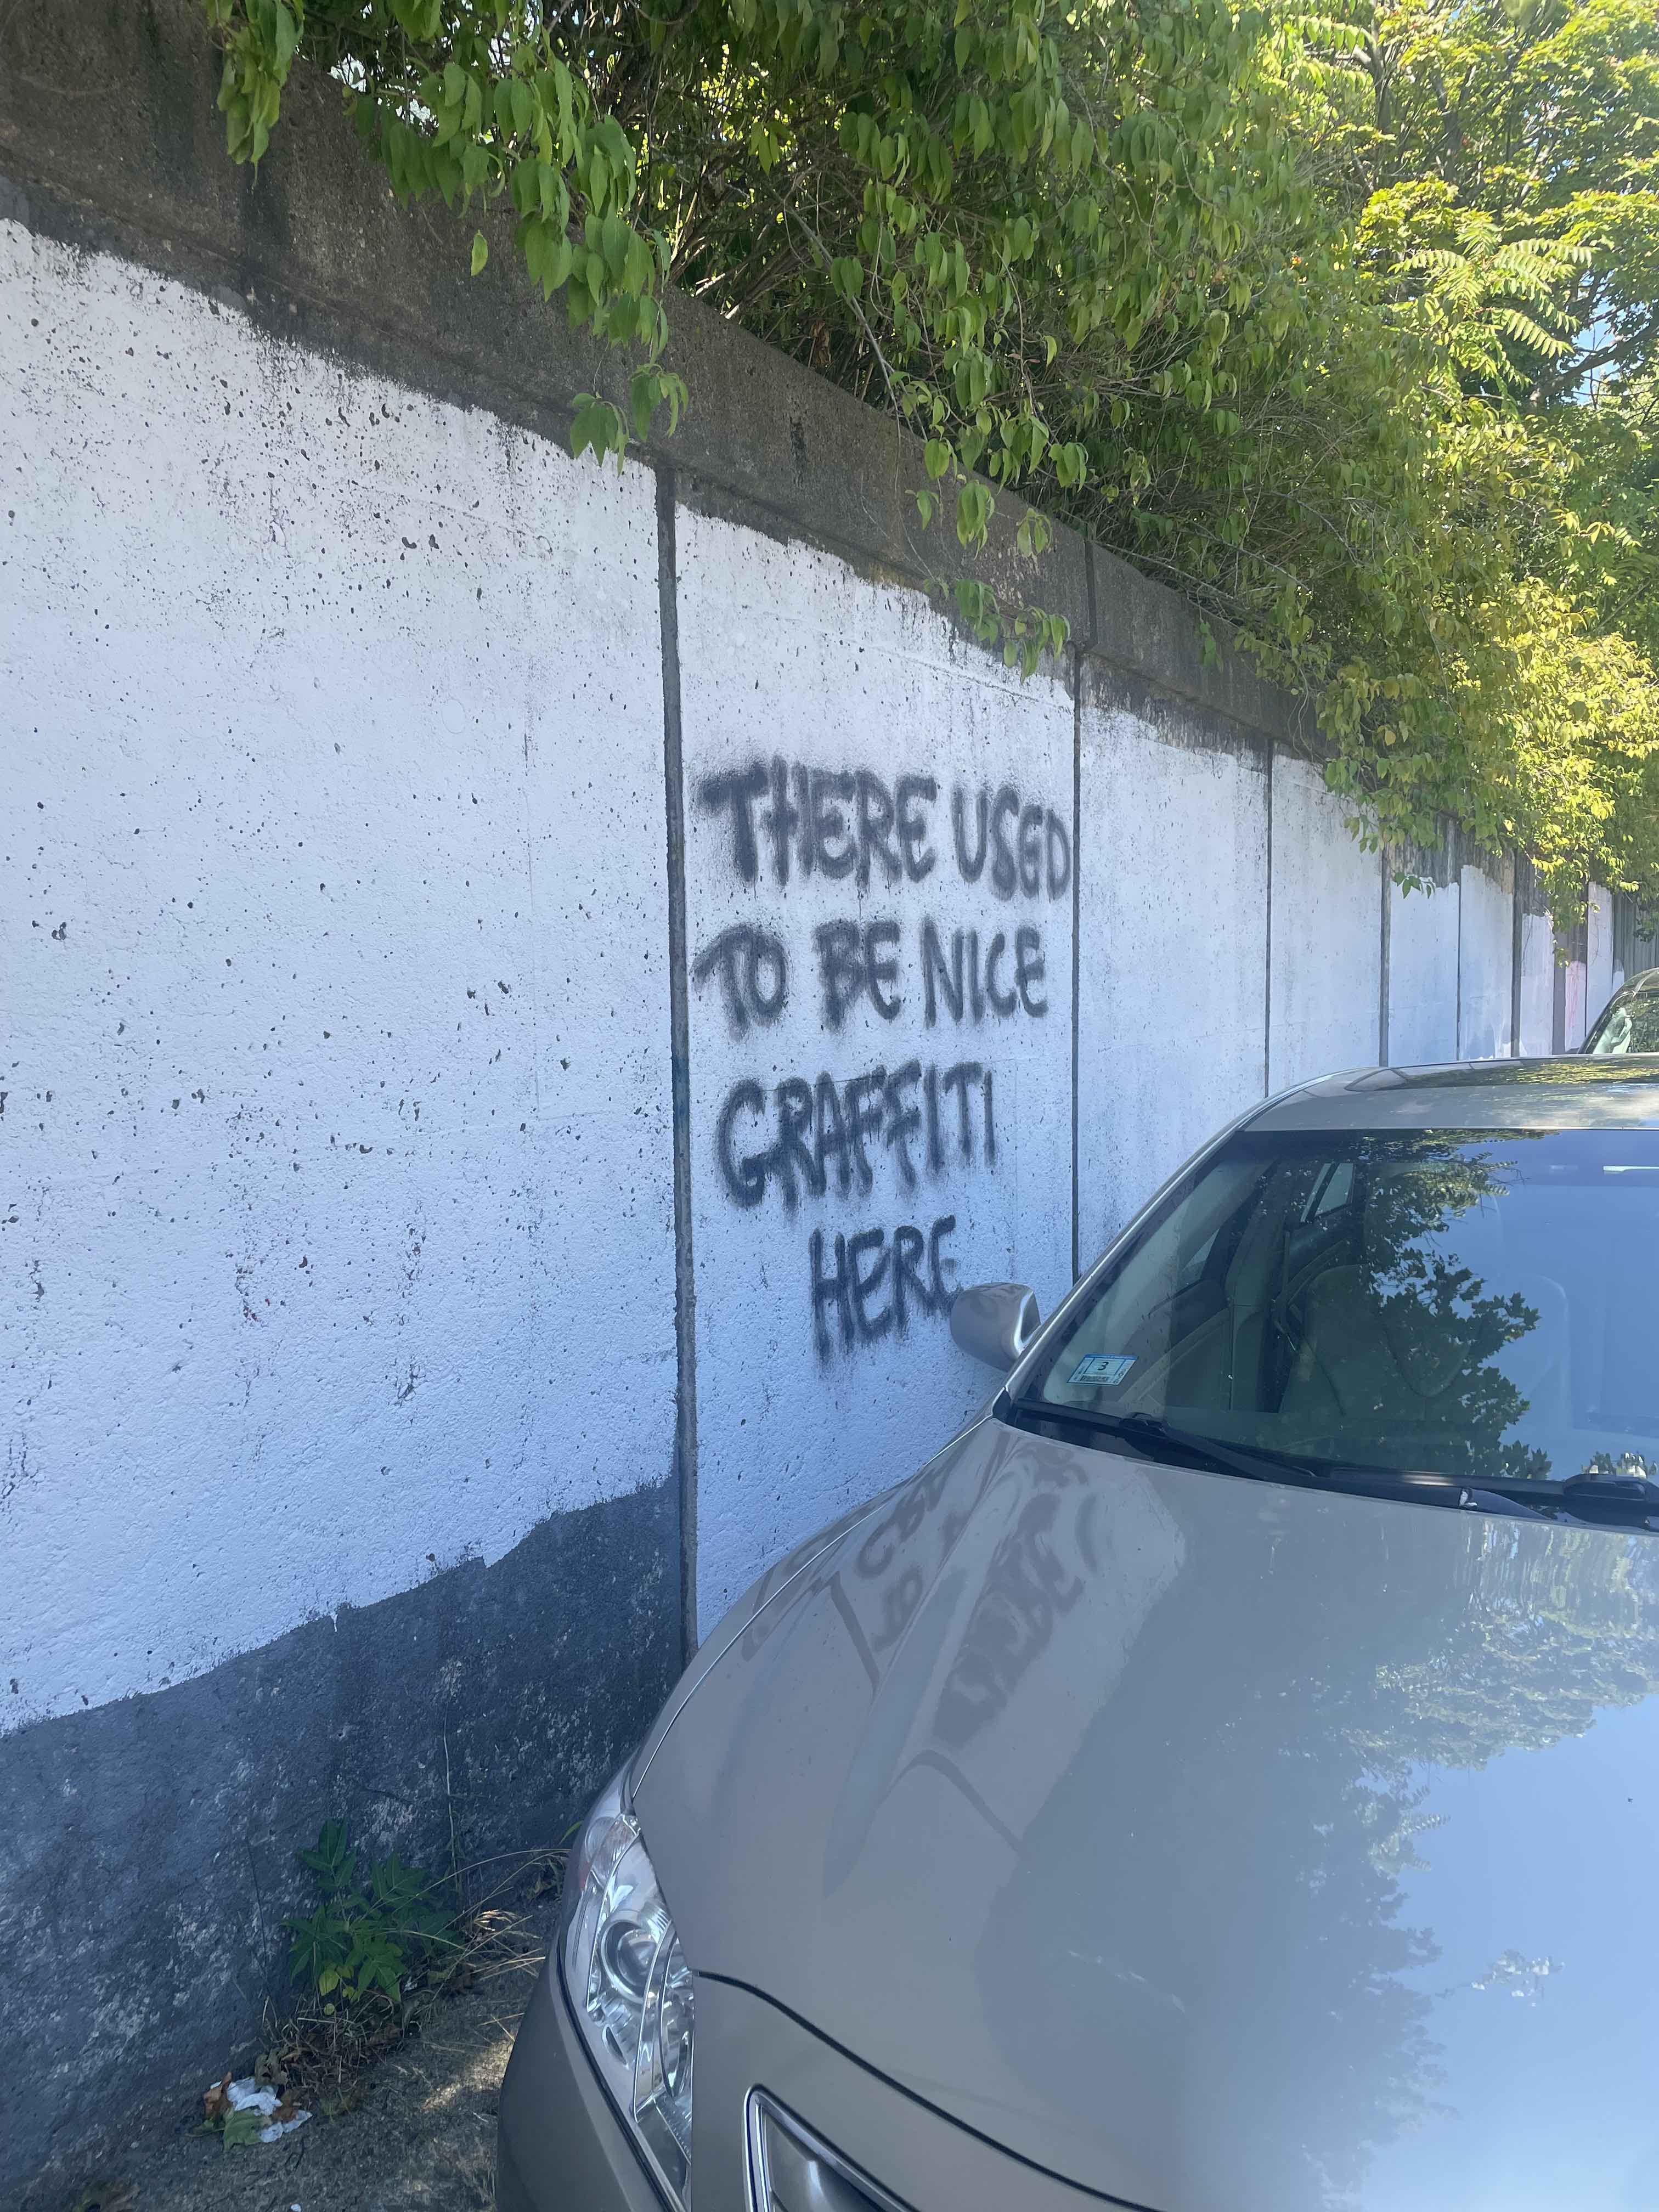 THERE USED
TO BE NICE
GRAFFITI
HERE
3